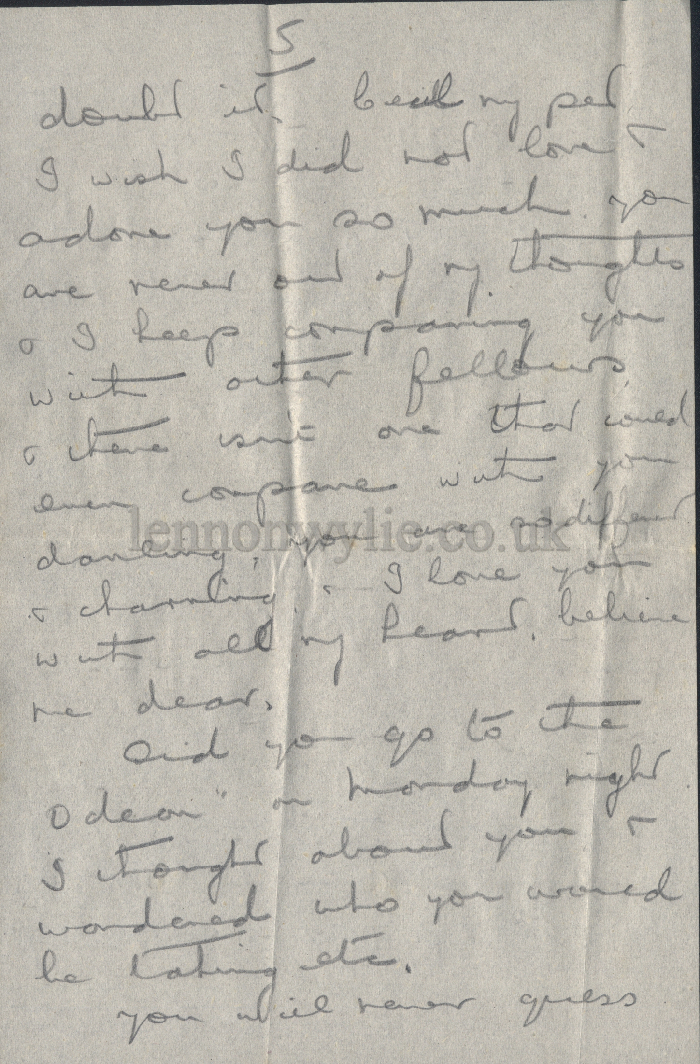 5
doubt it. Cecil my pet
I wish I did not love &
adore you so much. you
are never out of my thoughts
& I keep comparing you
with other fellows,
& there isn't one that could
even compare with you
lennonwylie.co.uk
darling, you are so different
& charming. & I love you
with all my heart. believe
me dear.
Did you go to the
Odeon" on Monday night
I thought about you &
wondered who you would
be taking etc.
you will never guess